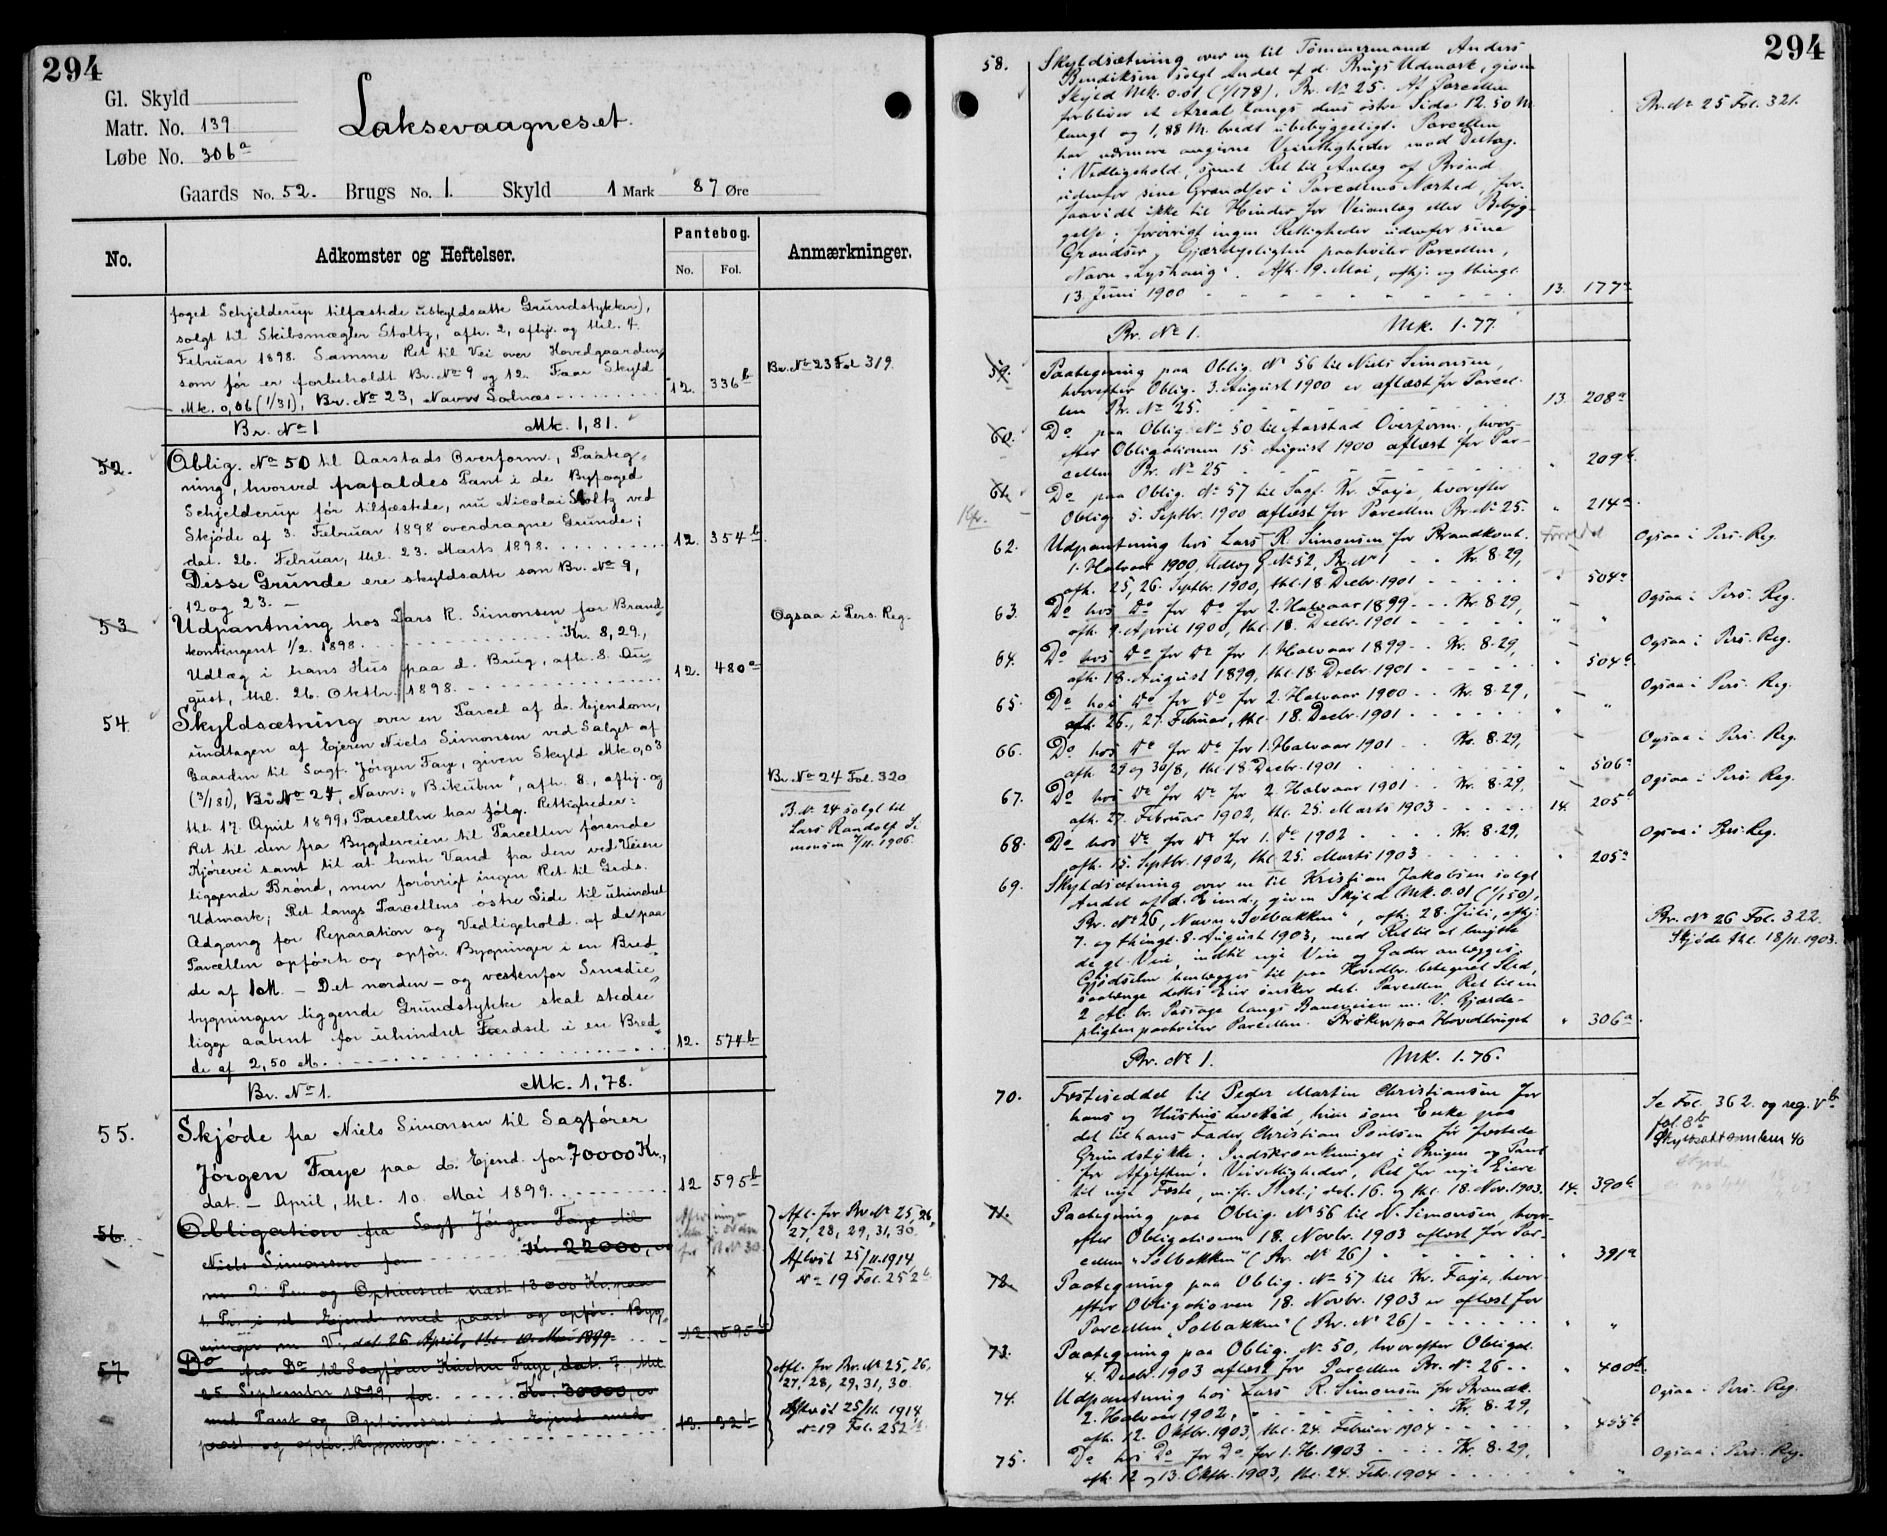 294
Gl. Skyld
Matr. No. 139
Løbe No. 306a
Laksevaagneset.
Gaards No. 52. Brugs No. 1. Skyld 1 Mark 87 Øre
No. Adkomster og Heftelser. Pantebog. No. Fol. Anmærkninger.
foged Schjelderup tilfæstede uskyldsatte Grundstykker),
solgt til Skibsmægler Stoltz, afh. 2, afhj. og thl. 4.
Februar 1898. Samme Ret til Vei over Hovedgaarden,
som før er forbeholdt Br. No 9 og 12. Faar Skyld
Mk. 0,06 (1/31), Br. No 23, Navn Solnæs 12. 336b Br. No 23 Fol 319.
Br. No 1 Mk. 1,81.
52. Oblig. No 50 til Aarstads Overform., Paateg-
ning, hvorved frafaldes Pant i de Byfoged
Schjelderup før tilfæstede, nu Nicolai Stoltz ved
Skjøde af 3. Februar 1898 overdragne Grunde;
dat. 26. Februar, thl. 23. Marts 1898. 12. 354b
Disse Grunde ere skyldsatte som Br. No 9,
12 og 23. –
53. Udpantning hos Lars R. Simonsen for Brand-
kontingent 1/2. 1898. Kr. 8,29., Ogsaa i Pers. Reg.
Udlæg i hans Hus paa d. Brug, afh. 8. Au-
gust, thl. 26. Oktbr. 1898. 12. 480a
54 Skyldsætning over en Parcel af do. Ejendom,
undtagen af Ejeren Niels Simonsen ved Salget af
Gaarden til Sagf. Jørgen Faye, given Skyld Mk 0,03
(3/181), Br. No 24, Navn: "Bikuben", afh. 8., afhj. og Br. No 24 Fol. 320
thl. 17. April 1899, Parcellen har følg. Rettigheder: B. No 24 solgt til
Ret til den fra Bygdeveien til Parcellen førende Lars Randolf Si-
Kjørevei samt til at hente Vand fra den ved Veien monsen 7/11. 1906.
liggende Brønd, men forøvrigt ingen Ret til Grds.
Udmark; Ret langs Parcellens østre Side til uhindret
Adgang for Reparation og Vedligehold. af de paa
Parcellen opførte og opfør. Bygninger i en Bred-
de af 1 M. – Det norden – og vestenfor Smedie-
bygningen liggende Grundstykke skal stedse
ligge aabent for uhindret Færdsel i en Bred-
de af 2,50 M. 12. 574b
Br. No 1. Mk. 1,78.
55. Skjøde fra Niels Simonsen til Sagfører
Jørgen Faye paa do. Ejend. for 70000 Kr.,
dat. – April, thl. 10. Mai 1899. 12 595b
56. Obligation fra Sagf. Jørgen Faye til Afl. for Br. No 25, 26,
Niels Simonsen for Kr. 22000, 27, 28, 29, 31, 30
m 2. Pr. og Oprinsret næst 13000 Kr. paa Aflyst 25/11. 1914
1. Pr. i d. Ejend. med paast. og opfør. Byg- No 19 Fol. 252b
ninger m. V., dat. 26 April, thl. 10. Mai 1899. 12. 595b
57. Do fra Do til Sagfører Kristen Faye, dat. 7. thl. Afl. for Br. No 25, 26,
25. September 1899, for Kr. 30000, 27, 28, 29, 31, 30.
med Pant og Oprinsret i d. Ejend med 13. 32b Aflyst 25/11. 1914
paast. og opfør. Bygninger No 19 Fol. 252b.
294
58. Skyldsætning over en til Tømmermand Anders
Bendiksen solgt Andel af d. Brugs Udmark, given
Skyld Mk. 0.01 (1/178). Br. No 25. Af Parcellen Br. No 25 Fol. 321.
forbliver et Areal langs dens østre Side 12.50 M.
langt og 1,88 M. bredt ubebyggeligt. Parcellen
har nærmere angivne Veirettigheder mod Deltag.
i Vedligehold, samt Ret til Anlæg af Brønd
udenfor sine Grændser i Parcellens Nærhed, for-
saavidt ikke til Hinder for Veianlæg eller Bebyg-
gelse; forøvrigt ingen Rettigheder udenfor sine
Grændser, Gjærdepligten paahviler Parcellen,
Navn "Lyshaug". Afh. 19. Mai, afhj. og thingl.
13 Juni 1900 13. 177a
Br. No 1. Mk. 1.77.
59. Paategning paa Oblig. No 56 til Niels Simonsen,
hvorefter Oblig. 3. August 1900 er aflæst for Parcel-
len Br. No 25. 13. 208a
60. Do paa Oblig. No 50 til Aarstad Overform., hvor-
efter Obligationen 15. August 1900 aflæst for Par-
cellen Br. No 25 " 209b.
61. Do paa Oblig. No 57 til Sagf. Kr. Faye, hvorefter
Oblig. 5. Septbr. 1900 aflæst for Parcellen Br. No 25. " 214a.
62. Udpantning hos Lars R. Simonsen for Brandkont. Ogsaa i Pers. Reg.
1. Halvaar 1900, Udlæg G No 52, Br. No 1 Kr. 8.29,
afh. 25, 26. Septbr. 1900, thl. 18 Decbr. 1901 " 504a
63. Do hos Do for Do for 2. Halvaar 1899 Kr 8.29, Ogsaa i Pers. Reg.
afh. 9. April 1900, thl. 18. Decbr. 1901 " "
64. Do hos Do for Do for 1. Halvaar 1899 Kr. 8.29, Ogsaa i Pers. Reg.
afh 18. August 1899, thl. 18 Decbr 1901 " 504b.
65. Do hos Do for Do for 2. Halvaar 1900 Kr. 8.29, Ogsaa i Pers. Reg.
afh. 26., 27. Februar, thl. 18. Decbr. 1901 " "
66. Do hos Do for Do for 1. Halvaar 1901 Kr. 8.29, Ogsaa i Pers. Reg.
afh. 29 og 30/8, thl. 18 Decbr. 1901 " 506a
67. Do hos Do for Do for 2 Halvaar 1901 Kr. 8.29, Ogsaa i Pers. Reg.
afh. 27. Februar 1902, thl. 25. Marts 1903 14. 205b
68. Do hos Do for Do for 1. Do 1902 Kr. 8.29, Ogsaa i Pers. Reg.
afh. 15. Septbr. 1902, thl. 25. Marts 1903 " 205a
69. Skyldsætning over en til Kristian Jakobsen solgt
Andel af d. Eiend., given Skyld Mk. 0.01 (1/150),
Br. No 26, Navn "Solbakken", afh. 28. Juli, afhj. Br. No 26 Fol. 322.
7. og thingl. 8. August 1903, med Ret til at benytte Skjøde thl. 18/11. 1903.
de gl. Veie, indtil nye Veie og Gader anlægges.
Gjødselen henlægges til paa Hovedbr. betegnet Sted,
saalænge dettes Eier ønsker det. Parcellen Ret til en
2 Al. br. Passage langs m. V. Gjærde-
pligten paahviler Parcellen. Brøken paa Hovedbruget " 306a.
Br. No 1. Mk. 1.76.
70. Festeseddel til Peder Martin Christiansen for
hans og Hustrus Levetid, hun som Enke paa Se Fol. 362. og reg. Vb
det til hans Fader Christian Poulsen før fæstede fol. 8b
Grundstykke. Indskrænkninger i Brugen og Pant Skyldsatt som løbn 40
for Afgiften. Veirettigheder, Ret for nye Eiere
til nye Feste, m. fl. Best.; dat. 16. og thl. 18. Nov. 1903. 14. 390b
71. Paategning paa Oblig. No 56 til N. Simonsen, hvor-
efter Obligationen 18. Novbr. 1903 aflæst for Par-
cellen "Solbakken" (Br. No 26) " 391a
72. Paategning paa Oblig. No 57 til Kr. Faye, hvor-
efter Obligationen 18. Novbr. 1903 er aflæst for
Parcellen "Solbakken" (Br. No 26) " "
73. Paategning paa Oblig. No. 50, hvorefter Obligat.
4. Decbr. 1903 aflæst for Parcellen Br. No 26 " 400b.
74. Udpantning hos Lars R. Simonsen for Brandk. Ogsaa i Pers. Reg.
2. Halvaar 1902, Kr. 8.29,
afh. 12. Oktbr. 1903, thl. 24. Februar 1904 " 455b
75. Do hos Do for Do for 1. H. 1903 Kr. 8.29, Ogsaa i Pers. Reg.
afh. 12 og 13. Oktbr. 1903, thl. 24. Feb. 1904 " "